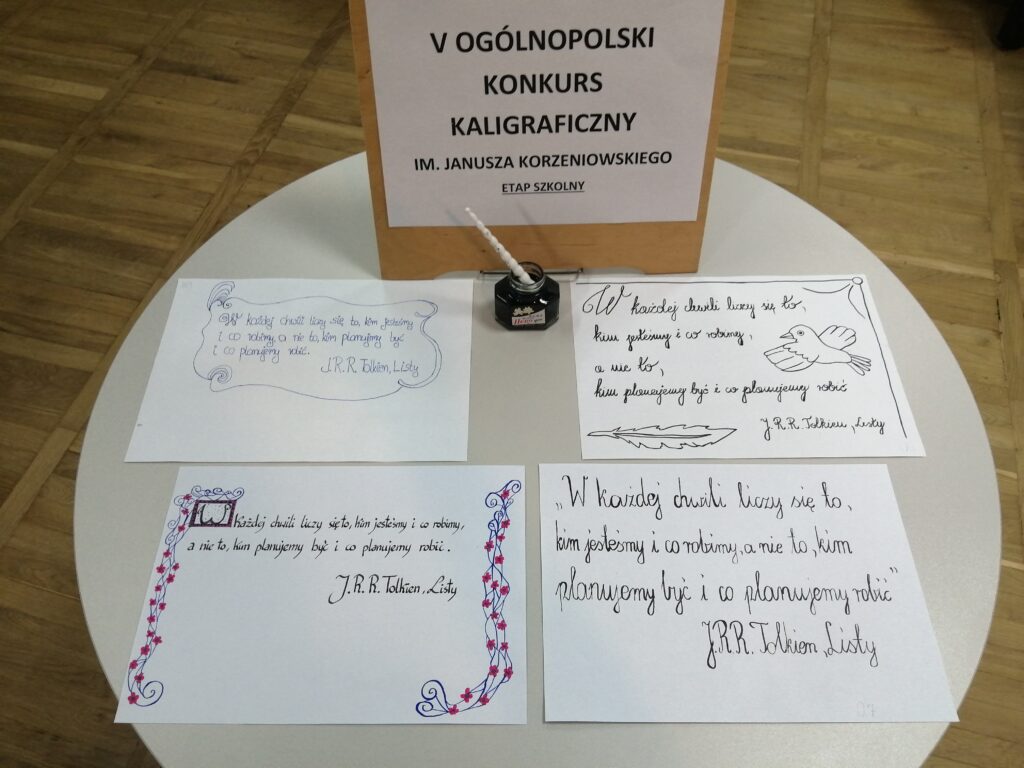 V OGÓLNOPOLSKI
KONKURS
KALIGRAFICZNY
IM. JANUSZA KORZENIOWSKIEGO
ETAP SZKOLNY
W każdej chwili liczy się to, kim jesteśmy
i co robimy, a nie to, kim planujemy być
i co planujemy robić.
J.R.R. Tolkien, Listy
W każdej chwili liczy się to,
kim jesteśmy i co robimy,
a nie to,
kim planejemy być i co planujemy robić
J.R.R. Tolkien, Listy
W każdej chwili liczy się to, kim jesteśmy i co robimy,
a nie to, kim planujemy być i co planujemy robić.
J.R.R. Tolkien, Listy
„W każdej chwili liczy się to,
kim jesteśmy i co robimy, a nie to, kim
planujemy być i co planujemy robić”
J.R.R. Tolkien, Listy